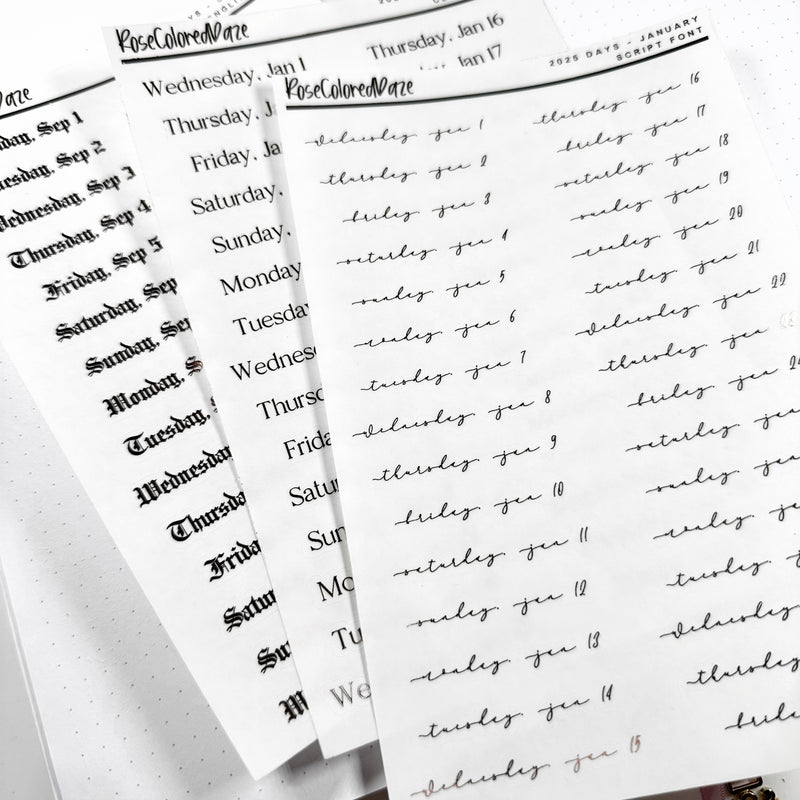 Daze
day, Sep 1
uesday, Sep 2
Wednesday, Sep 3
Thursday, Sep 4
Friday, Sep 5
Saturday, Sep
Sunday, Sep
Monday, S
Tuesday,
Wednesday
Thursda
Frida
Satu
Su
M
RoseColoredDaze
Wednesday, Jan 1
Thursday, J
Friday, Ja
Saturday,
Sunday,
Monday
Tuesday
Wednesd
Thursd
Frida
Satu
Sun
Mo
Tu
We
Thursday, Jan 16
Jan 17
RoseColoredDaze
2025 DAYS - JANUARY
SCRIPT FONT
wednesday, jan 1
thursday, jan 2
friday, jan 3
saturday, jan 4
sunday, jan 5
monday, jan 6
tuesday, jan 7
wednesday, jan 8
thursday, jan 9
friday, jan 10
saturday, jan 11
sunday, jan 12
monday, jan 13
tuesday, jan 14
wednesday, jan 15
thursday, jan 16
friday, jan 17
saturday, jan 18
sunday, jan 19
monday, jan 20
tuesday, jan 21
wednesday, jan 22
thursday, jan
friday, jan 24
saturday, jan
sunday, jan
monday, jan
tuesday, j
wednesday
thursday
frida